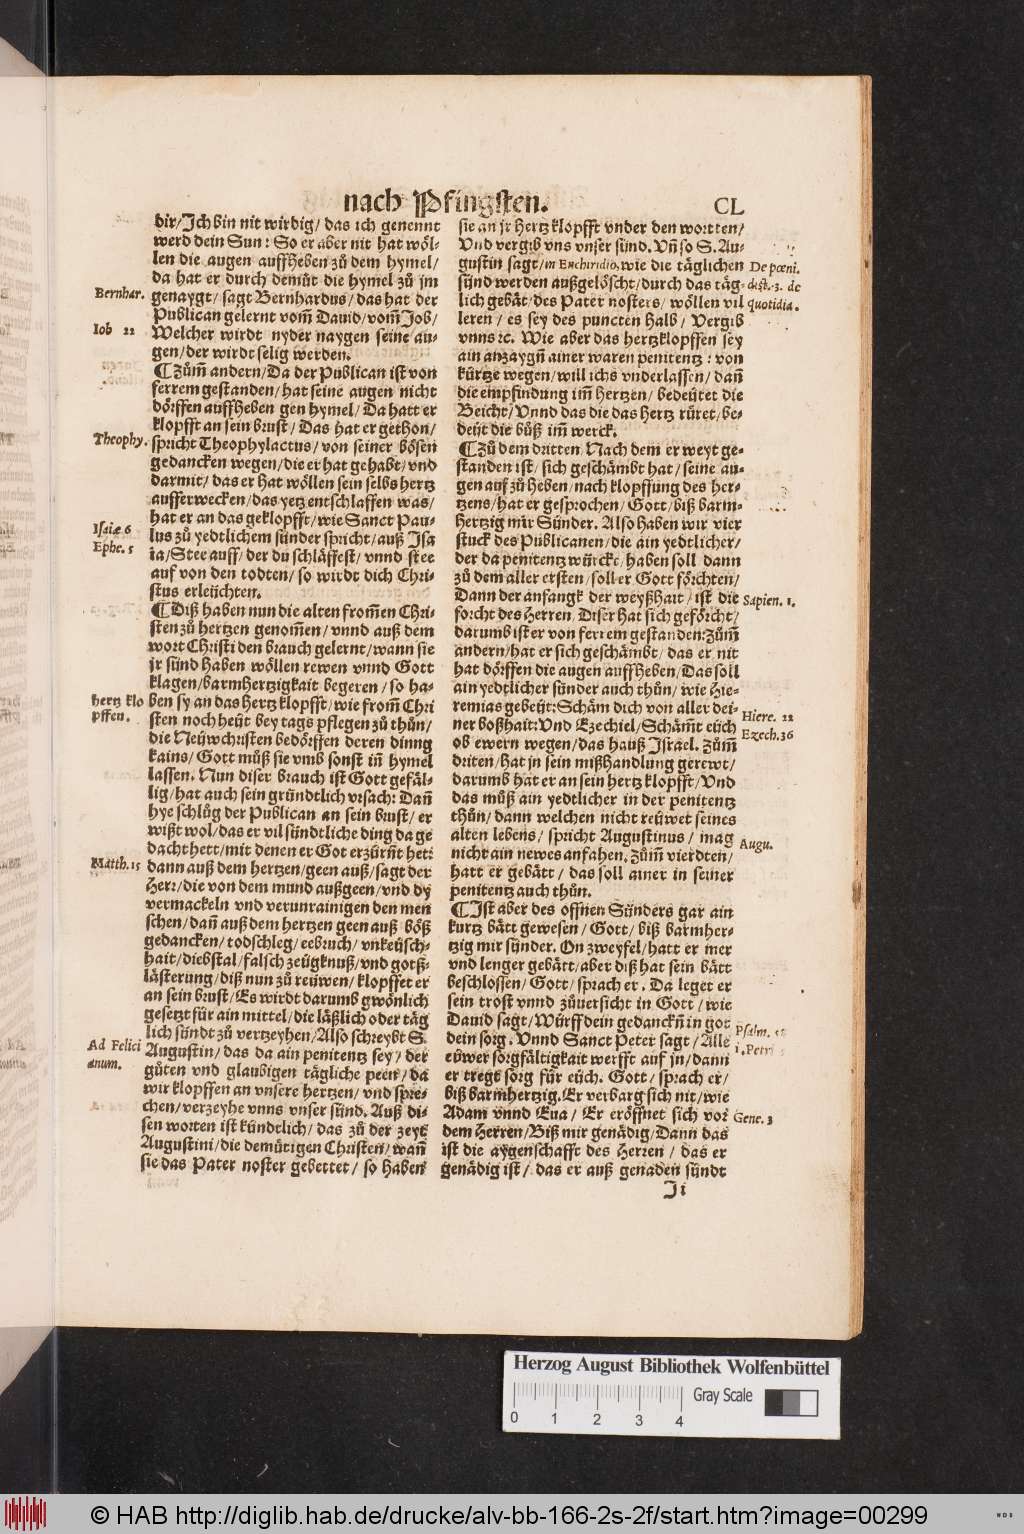 nach Pfingsten. CL
dir/Ich bin nit wirdig/ das ich genennt
werd dein Sun: So er aber nit hat wöl-
len die augen auffheben zů dem hymel/
da hat er durch demůt die hymel zů jm
Bernhar.
genaygt/ sagt Bernhardus/ das hat der
Publican gelernt vom̃ Dauid/ vom̃ Job/
Iob 22
Welcher wirdt nyder naygen seine au-
gen/der wirdt selig werden.
¶ Zům̃ andern/Da der Publican ist von
ferrem gestanden/hat seine augen nicht
dörffen auffheben gen hymel/ Da hatt er
klopfft an sein brust/ Das hat er gethon/
Theophy.
spricht Theophylactus/ von seiner bösen
gedancken wegen/die er hat gehabt/vnd
darmit/ das er hat wöllen sein selbs hertz
aufferwecken/das yetz entschlaffen was/
hat er an das geklopfft/wie Sanct Pau-
Isaiæ 6
lus zů yedtlichem sünder spricht/auß Isa
Ephe. 5
ia/Stee auff/ der du schläffest/ vnnd stee
auf von den todten/ so wirdt dich Chri-
stus erleüchten.
¶ Diß haben nun die alten from̃en Chri-
sten zů hertzen genom̃en/ vnnd auß dem
wort Christi den brauch gelernt/wann sie
jr sünd haben wöllen rewen vnnd Gott
klagen/barmhertzigkait begeren/ so ha-
hertz klo
ben sy an das hertz klopfft/wie from̃ Chri
pffen.
sten noch heüt bey tags pflegen zů thůn/
die Neüwchristen bedörffen deren dinng
kains/ Gott můß sie vmb sonst iñ hymel
lassen. Nun diser brauch ist Gott gefäl-
lig/hat auch sein gründtlich vrsach: Dañ
hye schlůg der Publican an sein brust/ er
wißt wol/das er vil sündtliche ding da ge
dacht hett/mit denen er Got erzürñt hett
Matth.15
dann auß dem hertzen/geen auß/sagt der
Herr/die von dem mund außgeen/vnd dy
vermackeln vnd verunrainigen den men
schen/dañ auß dem hertzen geen auß böß
gedancken/ todschleg/eebruch/ vnkeüsch-
hait/diebstal/falsch zeügknuß/vnd gotß-
lästerung/diß nun zů reüwen/klopffet er
an sein brust/ Es wirdt darumb gwönlich
gesetzt für ain mittel/die läßlich oder täg
lich sündt zů vertzeyhen/Also schreybt S.
Ad Felici
Augustin/ das da ain penitentz sey/ der
anum.
gůten vnd glaubigen tägliche peen/ da
wir klopffen an vnsere hertzen/ vnd spre-
chen/verzeyhe vnns vnser sünd. Auß di-
sen worten ist kündtlich/ das zů der zeyt
Augustini/die demůtigen Christen/ wañ
sie das Pater noster gebettet/ so haben
sie an jr hertz klopfft vnder den wortten/
Vnd vergib vns vnser sünd. Vñ so S. Au-
gustin sagt/in Enchiridio, wie die täglichen
De pœni.
sünd werden außgelöscht/durch das täg-
dist. 3. de
lich gebät/des Pater nosters/ wöllen vil
quotidia.
leren/ es sey des puncten halb/ Vergib
vnns ꝛc. Wie aber das hertzklopffen sey
ain anzaygñ ainer waren penitentz: von
kürtze wegen/ will ichs vnderlassen/ dañ
die empfindung im̃ hertzen/ bedeütet die
Beicht/ Vnnd das die das hertz rüret/be-
deüt die bůß im̃ werck.
¶ Zů dem dritten Nach dem er weyt ge-
standen ist/ sich geschämbt hat/ seine au-
gen auf zů heben/nach klopffung des her-
tzens/hat er gesprochen/ Gott/ biß barm-
hertzig mir Sünder. Also haben wir vier
stuck des Publicanen/die ain yedtlicher/
der da penitentz würckt/ haben soll dann
zů dem aller ersten/ soll er Gott förchten/
Dann der anfangk der weyßhait/ ist die
Sapien. 1.
forcht des Herren/ Diser hat sich geförcht/
darumb ist er von ferrem gestanden: Zům̃
andern/hat er sich geschämbt/ das er nit
hat dörffen die augen auffheben/Das soll
ain yedtlicher sünder auch thůn/ wie Hie-
remias gebeüt: Schäm dich von aller dei-
Hiere. 22
ner boßhait: Vnd Ezechiel/Schäm̃t eüch
Ezech.36
ob ewern wegen/das hauß Israel. Zům̃
driten/hat jn sein mißhandlung gerewt/
darumb hat er an sein hertz klopfft/ Vnd
das můß ain yedtlicher in der penitentz
thůn/ dann welchen nicht reüwet seines
alten lebens/ spricht Augustinus/ mag
Augu.
nicht ain newes anfahen. Zům̃ vierdten/
hatt er gebätt/ das soll ainer in seiner
penitentz auch thůn.
¶ Ist aber des offnen Sünders gar ain
kurtz bätt gewesen/ Gott/ biß barmher-
tzig mir sünder. On zweyfel/hatt er mer
vnd lenger gebätt/aber diß hat sein bätt
beschlossen/ Gott/ sprach er. Da leget er
sein trost vnnd zůuersicht in Gott/ wie
Dauid sagt/Würff dein gedanckñ in got
Psalm.
dein sorg. Vnnd Sanct Peter sagt/ Alle
1. Petri
eüwer sorgfältigkait werfft auf jn/dann
er tregt sorg für eüch. Gott/ sprach er/
biß barmhertzig. Er verbarg sich nit/ wie
Adam vnnd Eua/ Er eröffnet sich vor
Gene. 3
dem Herren/Biß mir genädig/Dann das
ist die aygenschafft des Herren/ das er
genädig ist/ das er auß genaden sündt
Ii
Herzog August Bibliothek Wolfenbüttel
Gray Scale
0 1 2 3 4
© HAB http://diglib.hab.de/drucke/alv-bb-166-2s-2f/start.htm?image=00299